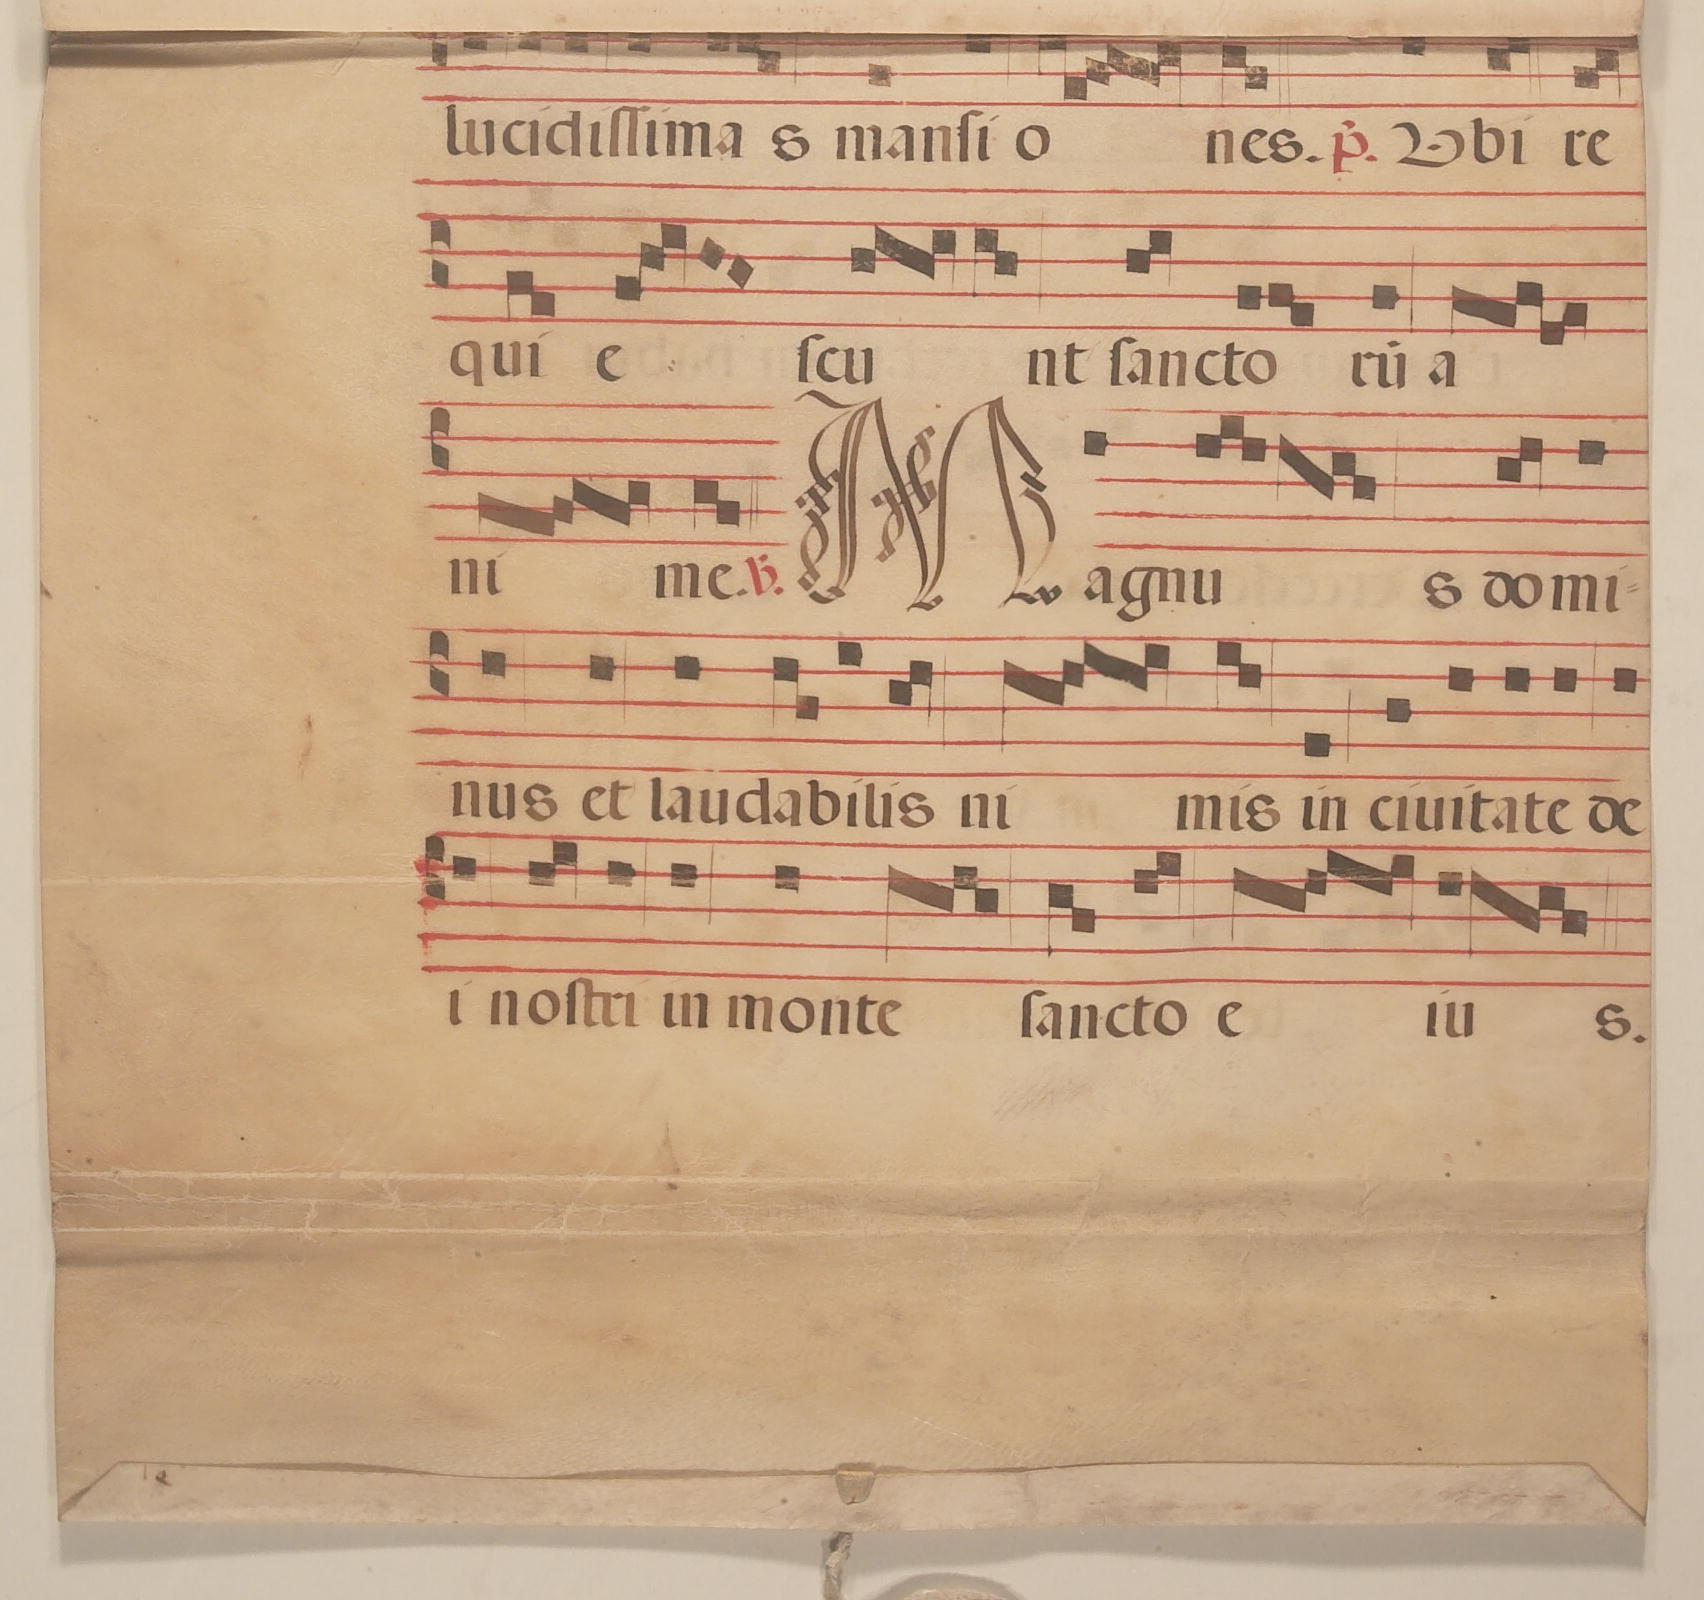 lucidissima s mansi o nes. p̃. Vbi re
qui e scu nt sancto rũ a
ni me. v̄. M agnu s domi-
nus et laudabilis ni mis in ciuitate de
i nostri in monte sancto e iu s.